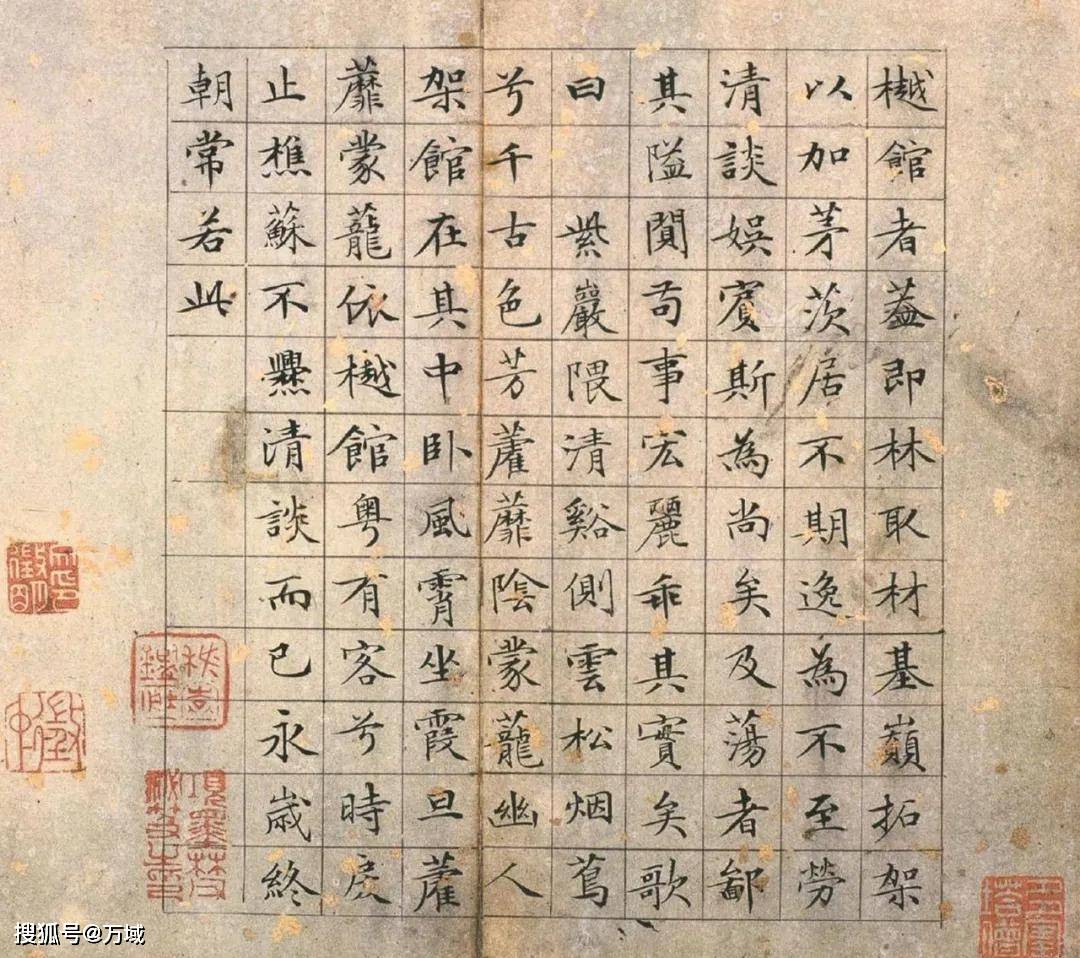 樾館者蓋即林取材基巔拓架
以加茅茨居不期逸為不至勞
清談娛賓斯為尚矣及蕩者鄙
其隘閴苟事宏麗乖其實矣歌
曰 紫巖隈清谿側雲松烟蔦
兮千古色芳藿蘼陰蒙蘢幽人
架館在其中卧風霄坐霞旦藿
蘼蒙蘢依樾館粵有客兮時戾
止樵蘇不爨清談而已永歲終
朝常若此
搜狐号@万域